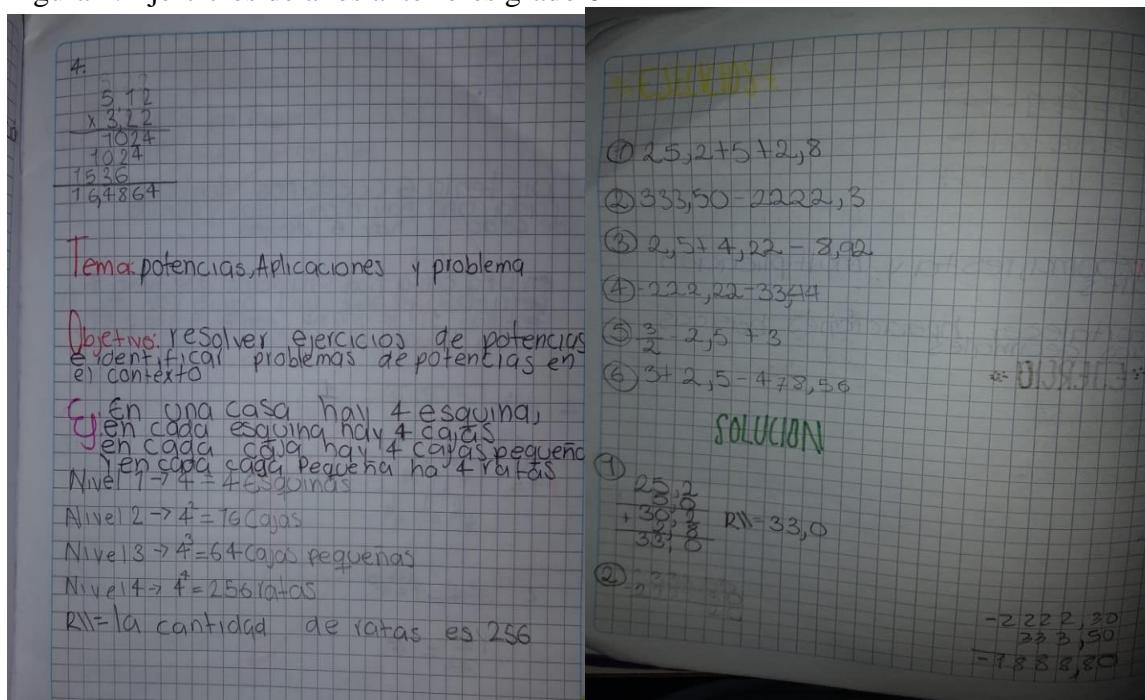 4.
5,12
x 3,22
1024
1024
1536
16,4864
Tema: potencias, Aplicaciones y problema
Objetivo: resolver ejercicios de potencias
e identificar problemas de potencias en
el contexto
Ej. En una casa hay 4 esquina,
en cada esquina hay 4 cajas
en cada caja hay 4 cajas pequeña
y en cada caga pequeña ha 4 ratas
Nivel 1 → 4 = 4 esquinas
Nivel 2 → 4² = 16 cajas
Nivel 3 → 4³ = 64 cajas pequeñas
Nivel 4 → 4⁴ = 256 ratas
R\\= la cantidad de ratas es 256
① 25,2+5+2,8
② 333,50-2222,3
③ 2,5+4,22-8,92
④ -222,22-33,44
⑤ 3/2 - 2,5 + 3
⑥ 3+2,5-478,56
SOLUCION
①
25,2
5,0
+ 30,2
2,8
33,0
R\\=33,0
②
-2222,30
333,50
-1888,80